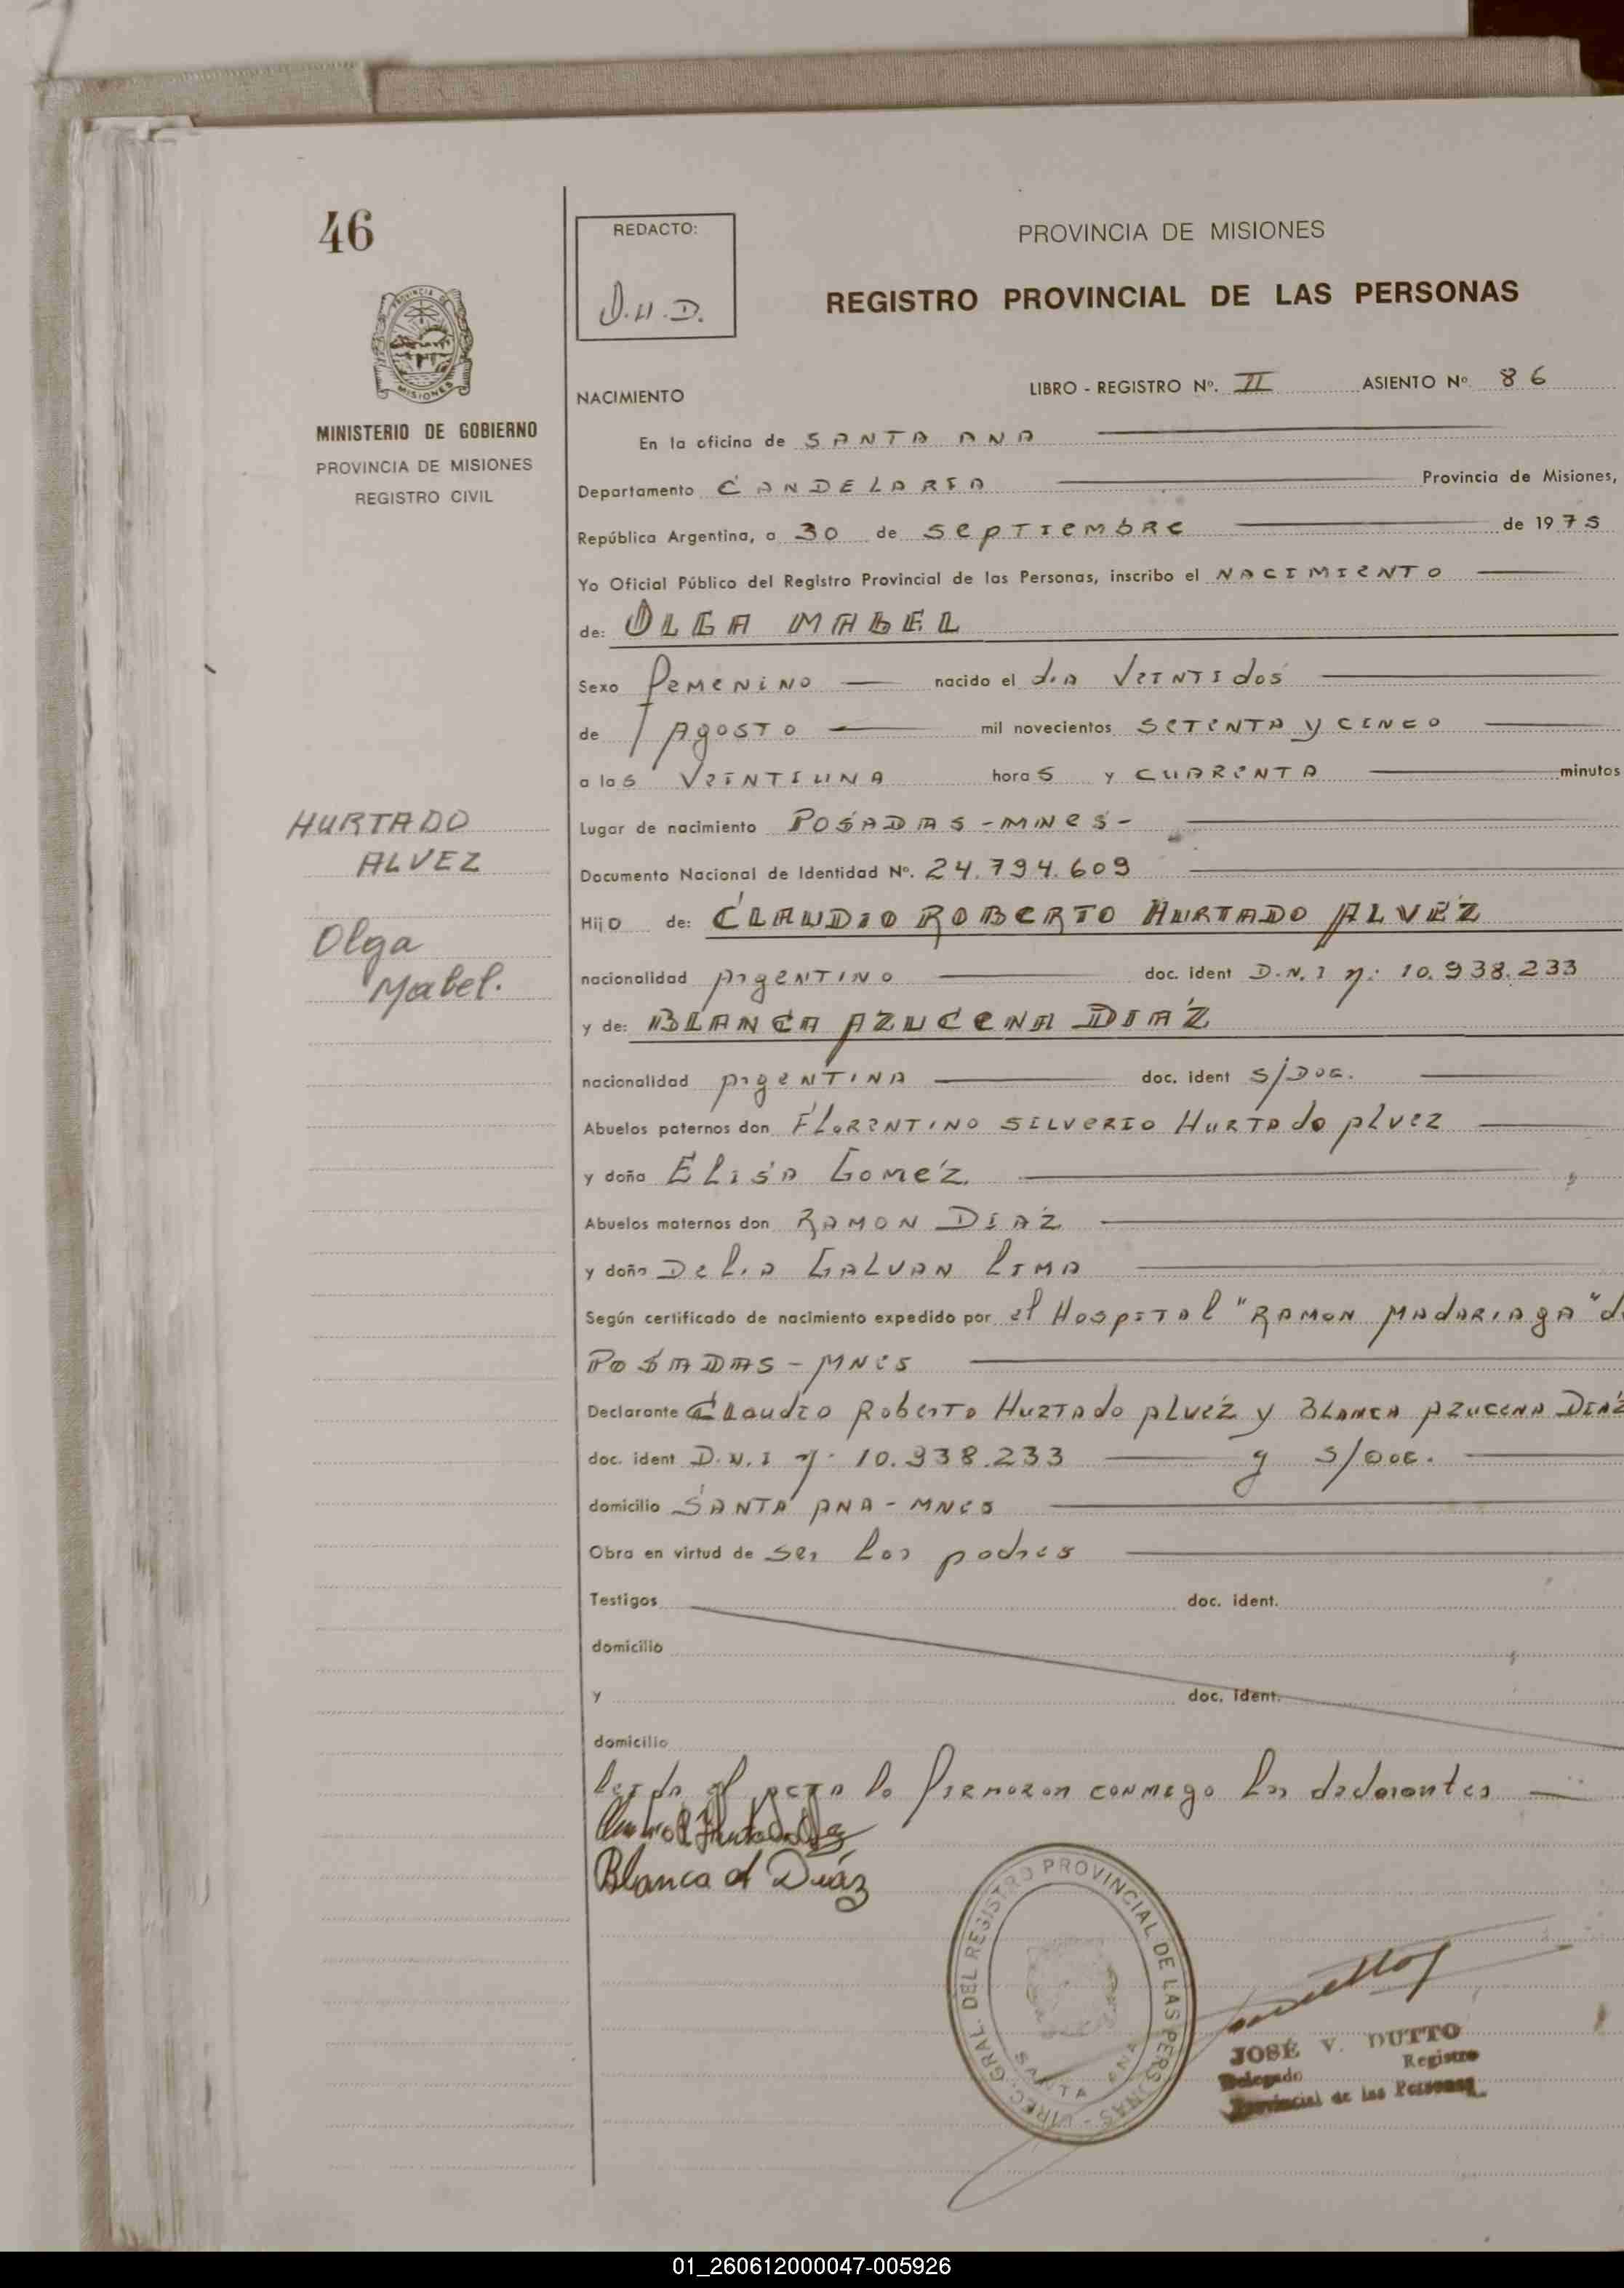 46
REDACTO:
D.H.D.
PROVINCIA DE MISIONES
REGISTRO PROVINCIAL DE LAS PERSONAS
PROVINCIA DE MISIONES
MINISTERIO DE GOBIERNO
PROVINCIA DE MISIONES
REGISTRO CIVIL
NACIMIENTO LIBRO - REGISTRO Nº. II ASIENTO Nº 86
En la oficina de SANTA ANA
Departamento CANDELARIA Provincia de Misiones,
República Argentina, a 30 de septiembre de 1975
Yo Oficial Público del Registro Provincial de las Personas, inscribo el NACIMIENTO
de: OLGA MABEL
Sexo femenino nacido el dia veintidos
de Agosto mil novecientos setenta y cinco
a las veintiuna horas y cuarenta minutos
HURTADO
ALVEZ
Olga
Mabel.
Lugar de nacimiento POSADAS - MNES -
Documento Nacional de Identidad Nº. 24.794.609
Hijo de: CLAUDIO ROBERTO HURTADO ALVEZ
nacionalidad Argentino doc. ident D.N.I n: 10.938.233
y de: BLANCA AZUCENA DIAZ
nacionalidad Argentina doc. ident S/DOC.
Abuelos paternos don Florentino Silverio Hurtado Alvez
y doña Elisa Gomez.
Abuelos maternos don RAMON DIAZ
y doña Delia Galvan Lima
Según certificado de nacimiento expedido por el Hospital "RAMON MADARIAGA" de
POSADAS - MNES
Declarante Claudio Roberto Hurtado Alvez y Blanca Azucena Diaz
doc. ident D.N.I n: 10.938.233 y S/DOC.
domicilio SANTA ANA - MNES
Obra en virtud de ser los padres
Testigos doc. ident.
domicilio
y doc. ident.
domicilio
leido el acta lo firmaron conmigo los declarantes
Blanca A Diáz
DIREC. GRAL. DEL REGISTRO PROVINCIAL DE LAS PERSONAS -
SANTA ANA
JOSÉ V. DUTTO
Delegado Registro
Provincial de las Personas
01_260612000047-005926